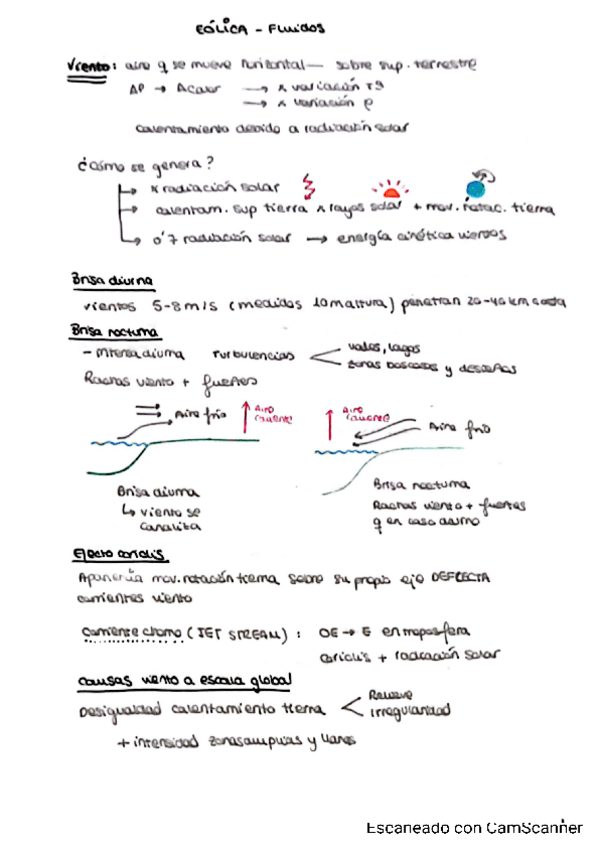 EÓLICA - Fluidos
Viento: aire q se mueve horizontal — sobre sup. terrestre
ΔP → Δcalor → x variación Tª
→ x variación ρ
calentamiento debido a radiación solar
¿Cómo se genera?
↳ x radiación solar
↳ calentam. sup tierra x rayos solar + mov. rotac. tierra
↳ 0'7 radiación solar → energía cinética vientos
Brisa diurna
vientos 5-8 m/s (medidos 10m altura) penetran 20-40 km costa
Brisa nocturna
- Intensa diurna Turbulencias < valles, lagos
zonas boscosas y desiertas
Rachas viento + fuertes
Aire frío
Aire caliente
Aire caliente
Aire frío
Brisa diurna
↳ viento se canaliza
Brisa nocturna
Rachas viento + fuertes
q en caso diurno
Efecto coriolis
mov. rotación tierra sobre su propio eje DEFLECTA
corrientes viento
Corriente chorro (JET STREAM) : OE → E en troposfera
coriolis + radiación solar
causas viento a escala global
Desigualdad calentamiento tierra < Relieve
Irregularidad
+ intensidad zonas amplias y llanas
Escaneado con CamScanner